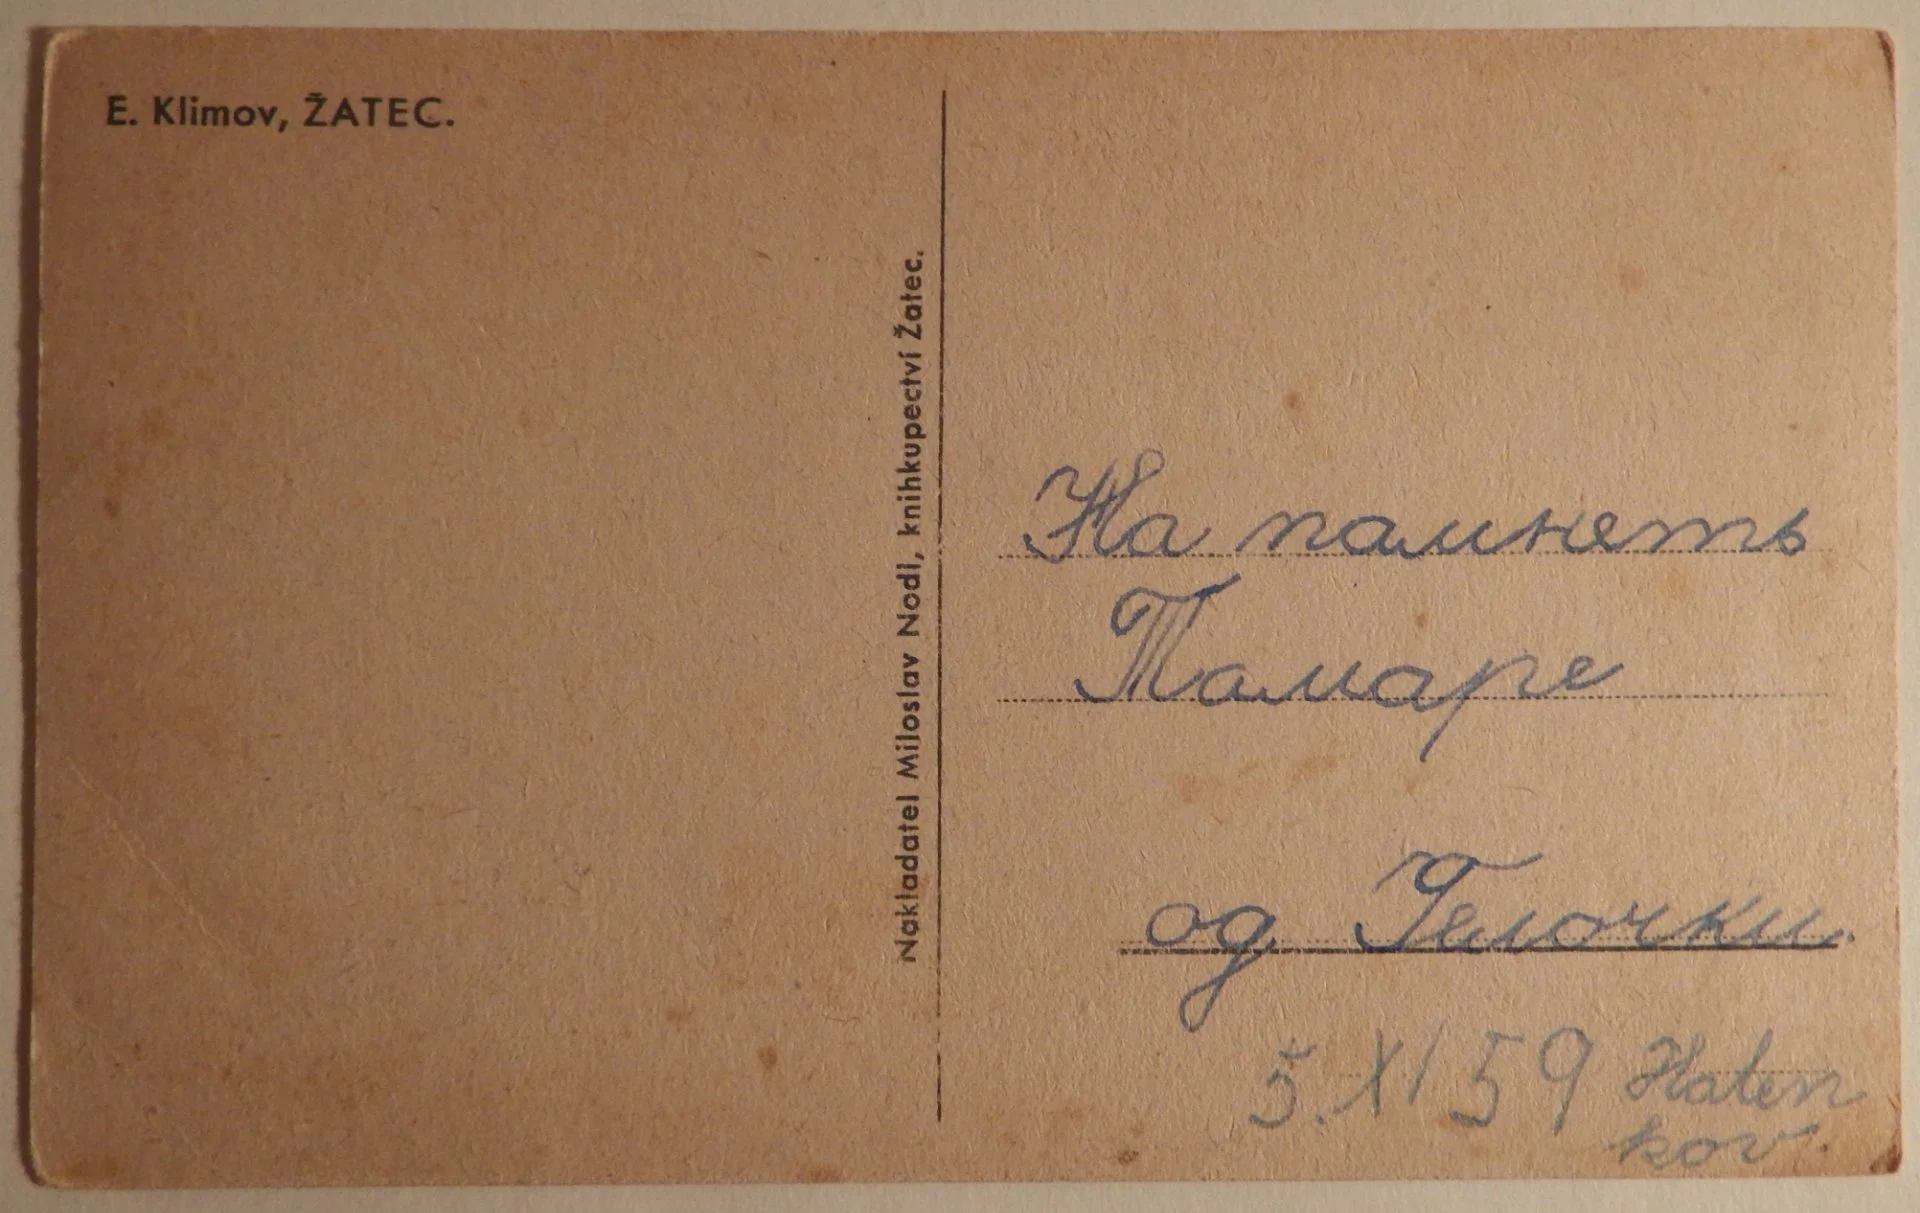 E. Klimov, ŽATEC.
Nakladatel Miloslav Nodl, knihkupectví Žatec.
На памнеть
Тамаре
од Гелочки.
5. XI 59
kov.